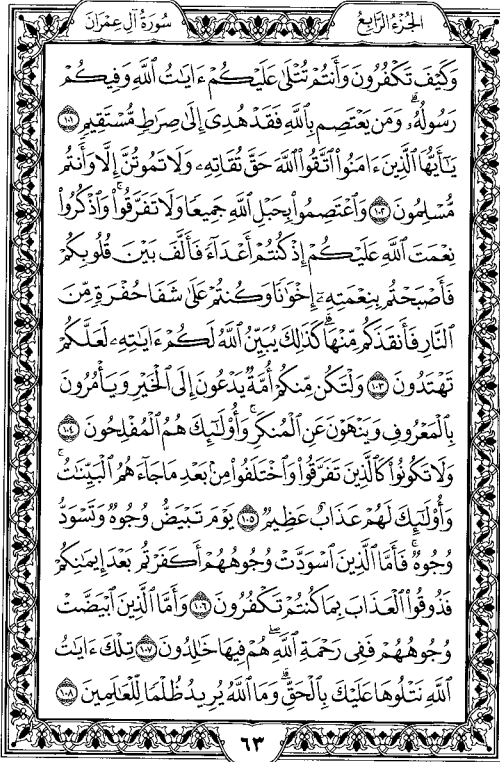 سُورَةُ آلِ عِمْرَانَ
الجُزْءُ الرَّابِعُ
وَكَيْفَ تَكْفُرُونَ وَأَنتُمْ تُتْلَىٰ عَلَيْكُمْ ءَايَٰتُ ٱللَّهِ وَفِيكُمْ
رَسُولُهُۥۗ وَمَن يَعْتَصِم بِٱللَّهِ فَقَدْ هُدِىَ إِلَىٰ صِرَٰطٍ مُّسْتَقِيمٍ ١٠١
يَٰٓأَيُّهَا ٱلَّذِينَ ءَامَنُوا۟ ٱتَّقُوا۟ ٱللَّهَ حَقَّ تُقَاتِهِۦ وَلَا تَمُوتُنَّ إِلَّا وَأَنتُم
مُّسْلِمُونَ ١٠٢ وَٱعْتَصِمُوا۟ بِحَبْلِ ٱللَّهِ جَمِيعًا وَلَا تَفَرَّقُوا۟ۚ وَٱذْكُرُوا۟
نِعْمَتَ ٱللَّهِ عَلَيْكُمْ إِذْ كُنتُمْ أَعْدَآءً فَأَلَّفَ بَيْنَ قُلُوبِكُمْ
فَأَصْبَحْتُم بِنِعْمَتِهِۦٓ إِخْوَٰنًا وَكُنتُمْ عَلَىٰ شَفَا حُفْرَةٍ مِّنَ
ٱلنَّارِ فَأَنقَذَكُم مِّنْهَاۗ كَذَٰلِكَ يُبَيِّنُ ٱللَّهُ لَكُمْ ءَايَٰتِهِۦ لَعَلَّكُمْ
تَهْتَدُونَ ١٠٣ وَلْتَكُن مِّنكُمْ أُمَّةٌ يَدْعُونَ إِلَى ٱلْخَيْرِ وَيَأْمُرُونَ
بِٱلْمَعْرُوفِ وَيَنْهَوْنَ عَنِ ٱلْمُنكَرِۚ وَأُو۟لَٰٓئِكَ هُمُ ٱلْمُفْلِحُونَ ١٠٤
وَلَا تَكُونُوا۟ كَٱلَّذِينَ تَفَرَّقُوا۟ وَٱخْتَلَفُوا۟ مِنۢ بَعْدِ مَا جَآءَهُمُ ٱلْبَيِّنَٰتُۚ
وَأُو۟لَٰٓئِكَ لَهُمْ عَذَابٌ عَظِيمٌ ١٠٥ يَوْمَ تَبْيَضُّ وُجُوهٌ وَتَسْوَدُّ
وُجُوهٌۚ فَأَمَّا ٱلَّذِينَ ٱسْوَدَّتْ وُجُوهُهُمْ أَكَفَرْتُم بَعْدَ إِيمَٰنِكُمْ
فَذُوقُوا۟ ٱلْعَذَابَ بِمَا كُنتُمْ تَكْفُرُونَ ١٠٦ وَأَمَّا ٱلَّذِينَ ٱبْيَضَّتْ
وُجُوهُهُمْ فَفِى رَحْمَةِ ٱللَّهِۖ هُمْ فِيهَا خَٰلِدُونَ ١٠٧ تِلْكَ ءَايَٰتُ
ٱللَّهِ نَتْلُوهَا عَلَيْكَ بِٱلْحَقِّۗ وَمَا ٱللَّهُ يُرِيدُ ظُلْمًا لِّلْعَٰلَمِينَ ١٠٨
٦٣